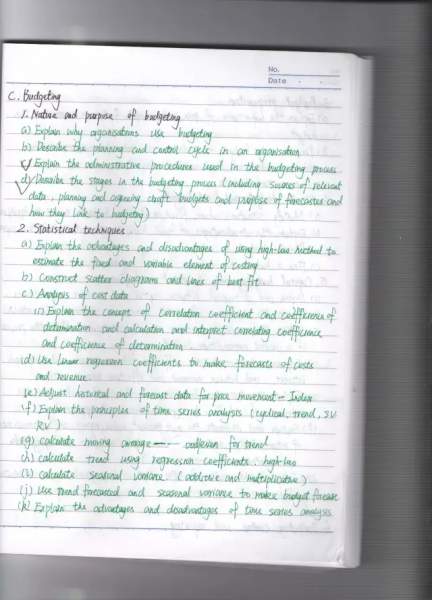 No.
Date . .
C. Budgeting
1. Nature and purpose of budgeting
a) Explain why organisations use budgeting
b) Describe the planning and control cycle in an organisation
c) Explain the administrative procedures used in the budgeting process
d) Describe the stages in the budgeting process (including sources of relevant
data, planning and agreeing draft budgets and purpose of forecastes and
how they link to budgeting)
2. Statistical techniques
a) Explain the advantages and disadvantages of using high-low method to
estimate the fixed and variable element of costing
b) Construct scatter diagrams and lines of best fit
c) Analysis of cost data
(i) Explain the concept of correlation coefficient and coefficience of
determination and calculation and interpret correlating coefficience
and coefficience of determination
(d) Use linear regression coefficients to make forecasts of costs
and revenue
(e) Adjust historical and forecast data for price movement - Index
(f) Explain the principles of time series analysis (cyclical, trend, SV
RV)
(g) calculate moving average for trend
(h) calculate trend using regression coefficients. high-low
(i) calculate seasonal variance (additive and multiplicative)
(j) Use trend forecasted and seasonal variance to make budget forecase
(k) Explain the advantages and disadvantages of time series analysis